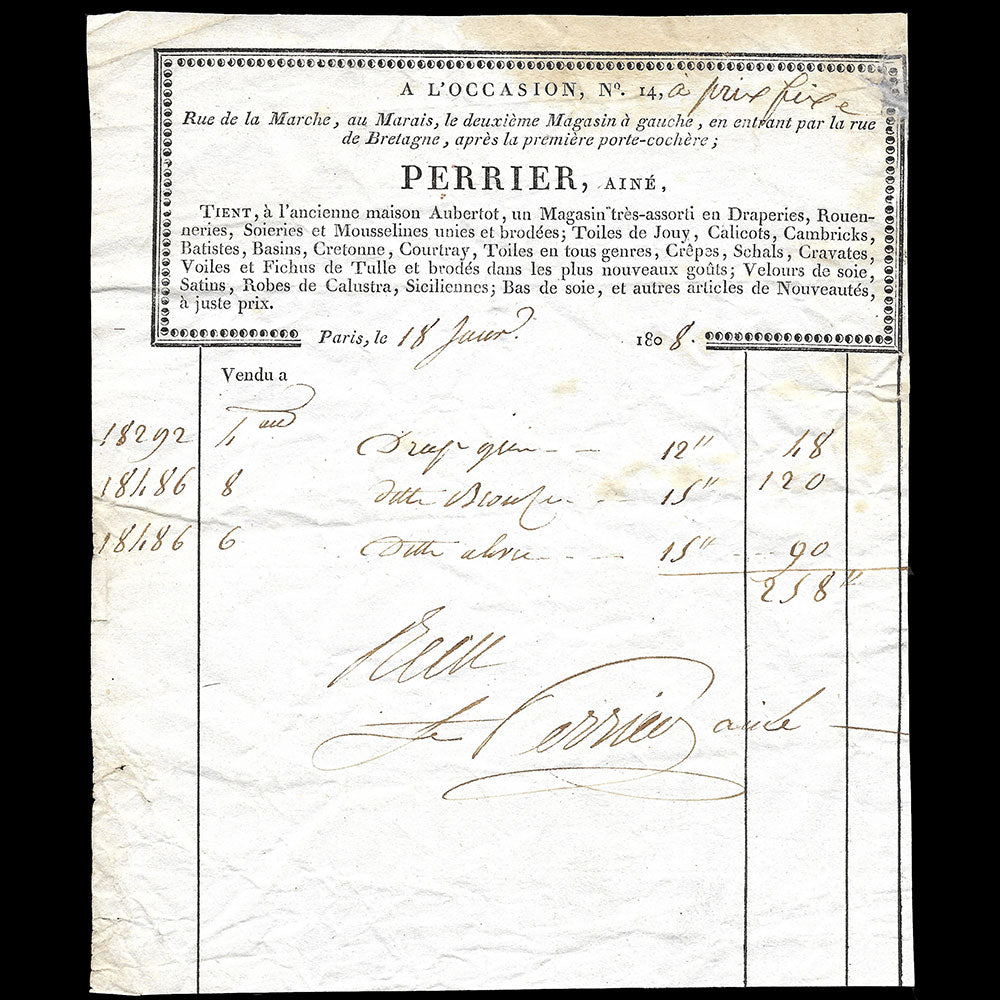 A L'OCCASION, Nº. 14, à prix fixe
Rue de la Marche, au Marais, le deuxième Magasin à gauche, en entrant par la rue
de Bretagne, après la première porte-cochère;
PERRIER, AINÉ,
TIENT, à l'ancienne maison Aubertot, un Magasin très-assorti en Draperies, Rouen-
neries, Soieries et Mousselines unies et brodées; Toiles de Jouy, Calicots, Cambricks,
Batistes, Basins, Cretonne, Courtray, Toiles en tous genres, Crêpes, Schals, Cravates,
Voiles et Fichus de Tulle et brodés dans les plus nouveaux goûts; Velours de soie,
Satins, Robes de Calustra, Siciliennes; Bas de soie, et autres articles de Nouveautés,
à juste prix.
Paris, le 18 Janvr. 1808.
Vendu a
18292 4 Drap 12" 48
18486 8 ditto 15" 120
18486 6 Ditto 15" 90
258"
Perrier ainé